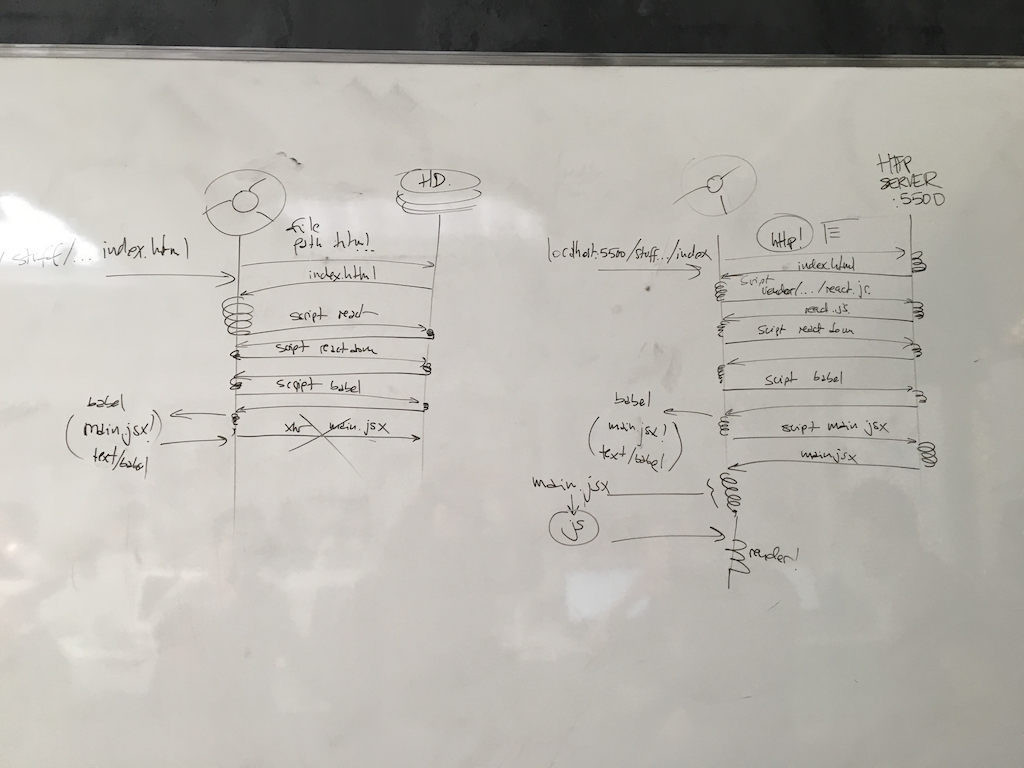 HD.
file
path html
stuff/... index.html
index.html
script react
script react dom
script babel
babel
(main.jsx!)
text/babel
xhr main.jsx
HTTP
SERVER
:5500
http!
localhost:5500/stuff../index
index.html
script
vendor/.../react.js
react.js
script react dom
script babel
babel
(main.jsx!
text/babel)
script main jsx
main.jsx
main.jsx
js
render!